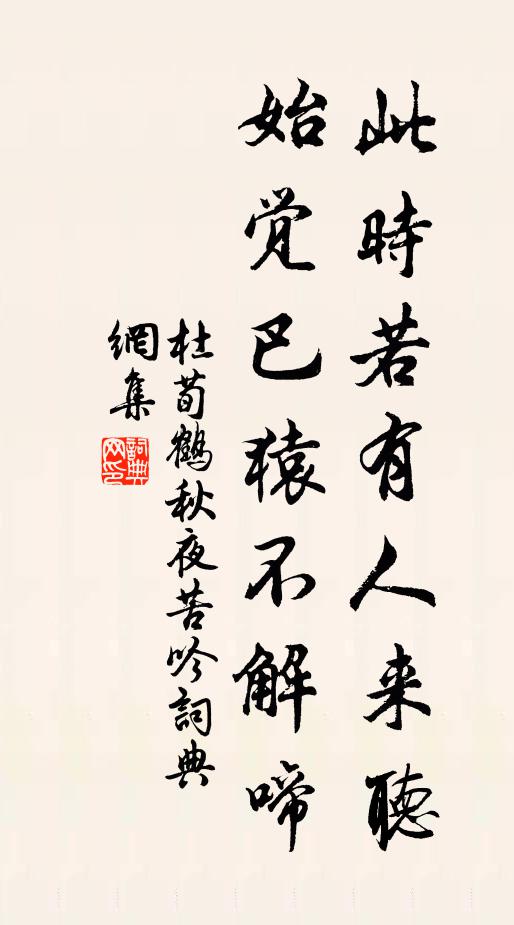 此時若有人来聽
始覚巴猿不解啼
杜荀鶴秋夜苦吟詞典
網集
詞典网印